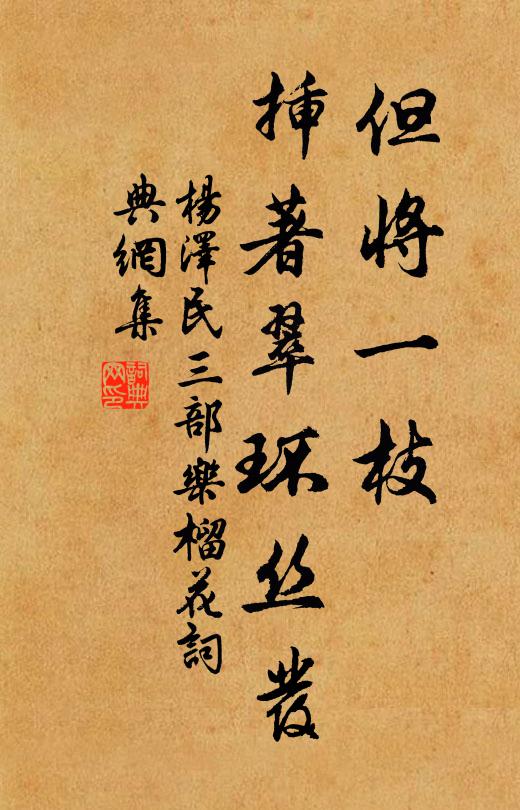 但將一枝
挿著翠环丝發
楊澤民三部樂榴花詞
典網集
詞典
网印